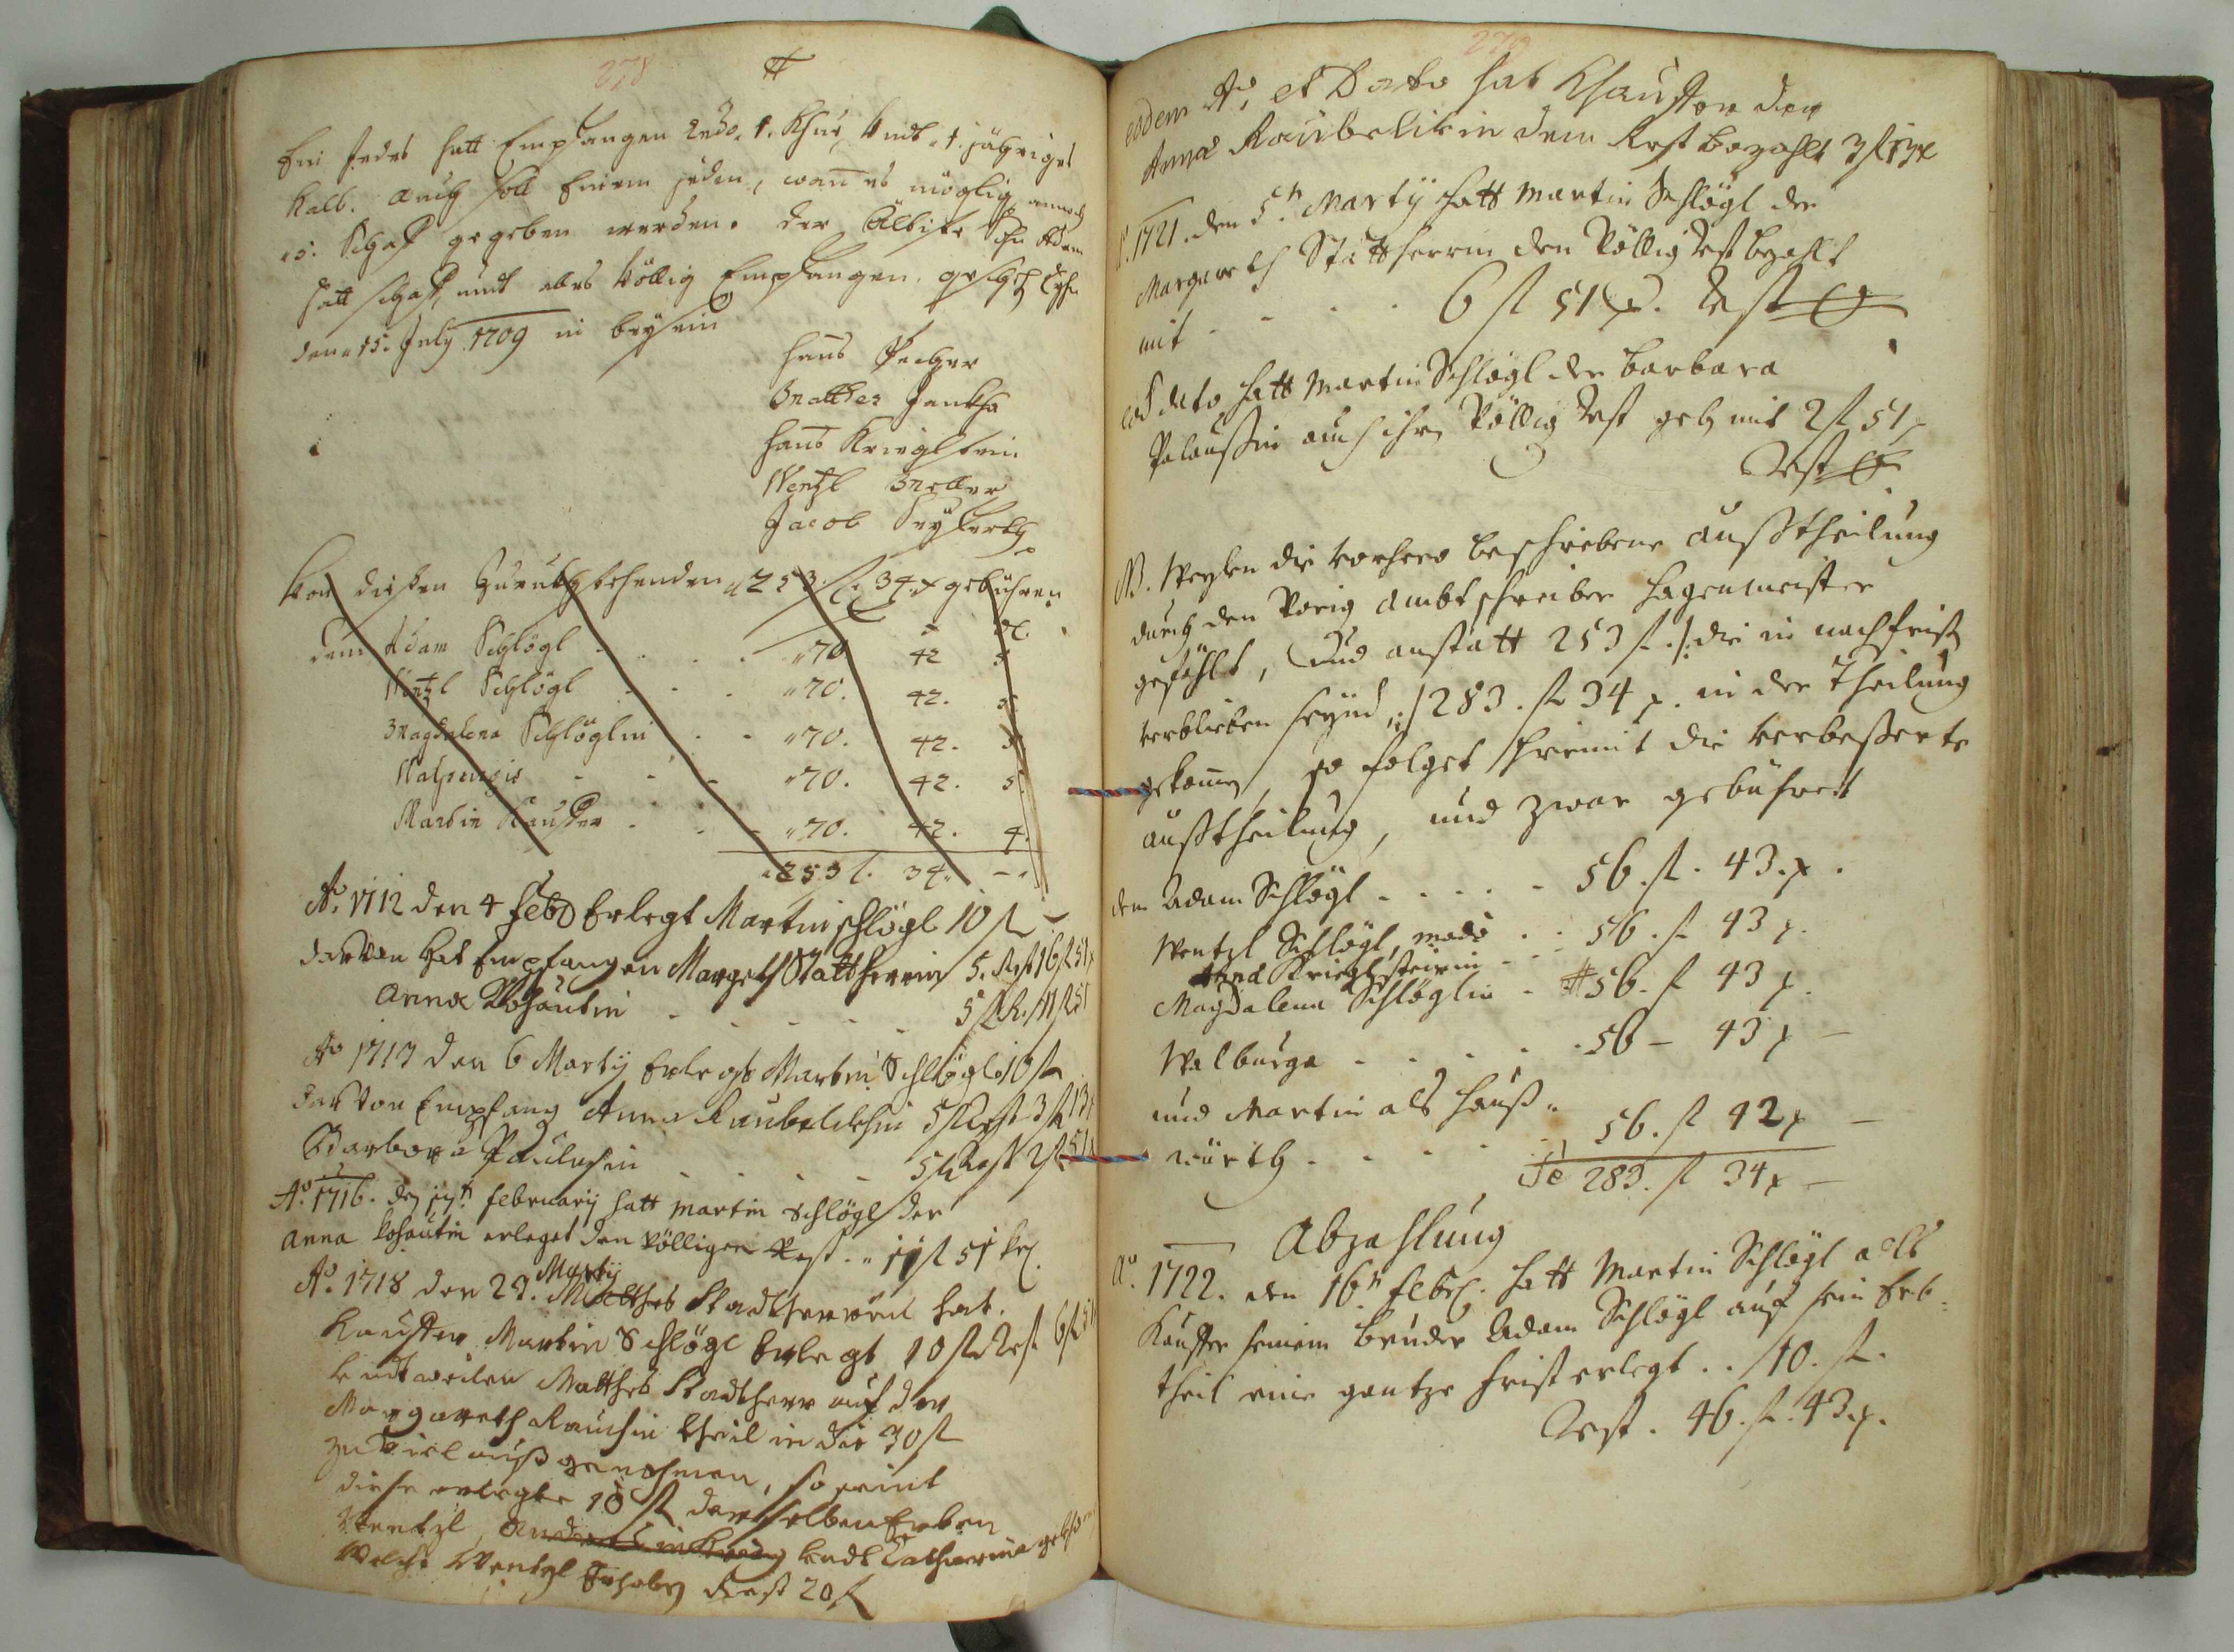 278
Ein jedes hatt Empfangen 1. Khue, Undt 1. jähriges
Kalb. auch soll Einem jeden, wan es möglig, annoch
5. Schaff gegeben werden. der Ältiste Sohn Adam
hatt schaff, undt alles Völlig Empfangen. geschehen
den 15. July 1709 in beysein
Hans
Matthes Jankha
Hans Krieglstein
Wentzl Meller
Jacob Seyferth
Von diesen Zuruckhstehenden 253 fl. 34 x gebühren
dem Adam Schlögl 70 42 5
Wentzl Schlögl 70. 42. 5
Magdalena Schlöglin 70. 42. 5
Walpurgis 70. 42. 5
Martin Kauffer 70. 42. 4.
253 f. 34. –
Ao. 1712 den 4 Feb Erlegt Martin schlögl 10 fl
darvon hat Empfangen Margeth Stattherrin 5. Rest 16 fl 51 x
Anna Kohautin 5 fl R. 11 fl 51
Ao 1713 den 6 Marty Erlegt Martin Schlögl 10 fl
darvon Empfang Anna Raubelickhin 5 fl Rest 3 fl 13 x
Barbora Paulusin 5 fl Rest 2 fl 51 x
Ao. 1716. den 17n february hatt martin Schlögl der
Anna kohautin erleget den völligen Rest 11 fl 51 kr.
Ao. 1718 den 29. Marty Matthes Stadtherrin hat.
Kauffer Martin Schlögl Erlegt 10 fl Rest 6 fl 51
Undt weilen Matthes Stadtherr auf der
Margareth Rauchin theil in die 30 fl
zu viel auß genohmen, so seint
diese erlegte 10 fl derselben Erben
Wentzl, undt Catharina
Welche Wentzl Erhoben Rest 20 fl
279
eodem Ao. et Dato hat Khauffer der
Anna Raubelikin dem Rest bezahlt 3 fl 13 x
1721. den 5tn Martij hatt Martin Schlögl der
Margareth Stattherrin den Völlig Rest bezahlt
mit 6 fl 51 x. Rest
eod dato hatt Martin Schlögl der Barbara
Palaußin auch ihr Völlig Rest geben mit 2 fl 51 x
Rest
NB. Weylen die vorhero beschriebene außtheilung
durch den Vorig Ambtschreiber Hagenmeister
gefählt, Und anstatt 253 fl. /: die in nachfrist
verblieben seynd :/ 283. fl 34 x. in der Theilung
gekomen, so folget hiemit die verbeßerte
außtheilung, und zwar gebühret
dem Adam Schlögl 56. fl. 43. x.
Wentzl Schlögl, modo 56. fl 43 x.
Anna Krieglsteinin
Magdalena Schlöglin 56. fl 43 x.
Walburga 56 – 43 x –
und Martin als Hauß
würth 56. fl 42 x –
Sa 283. fl 34 x –
Abzahlung
Ao. 1722. den 16n Febr. hatt Martin Schlögl als
Kauffer seinem Bruder Adam Schlögl auf sein Erb
theil eine gantze frist erlegt 10. fl.
Rest. 46. fl. 43. x.